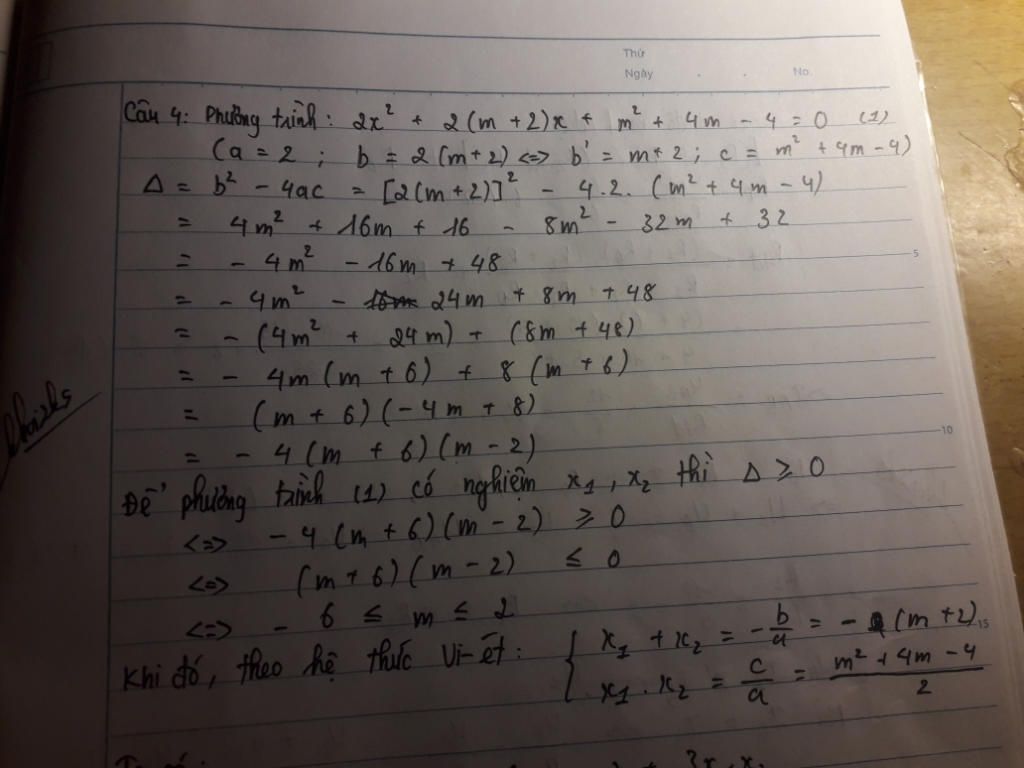 Thứ
Ngày . . No.
Câu 4: Phường trình: 2x² + 2(m+2)x + m² + 4m - 4 = 0 (1)
(a = 2 ; b = 2(m+2) <=> b' = m+2 ; c = m² + 4m - 4)
Δ = b² - 4ac = [2(m+2)]² - 4.2. (m² + 4m - 4)
= 4m² + 16m + 16 - 8m² - 32m + 32
5
= - 4m² - 16m + 48
= - 4m² - 24m + 8m + 48
= - (4m² + 24m) + (8m + 48)
= - 4m(m + 6) + 8(m + 6)
= (m + 6)(-4m + 8)
10
= - 4(m + 6)(m - 2)
Để phường trình (1) có nghiệm x₁, x₂ thì Δ ≥ 0
<=> - 4(m + 6)(m - 2) ≥ 0
<=> (m + 6)(m - 2) ≤ 0
<=> - 6 ≤ m ≤ 2
15
Khi đó, theo hệ thức Vi-ét: { x₁ + x₂ = -b/a = - (m+2)
x₁ . x₂ = c/a = (m² + 4m - 4)/2